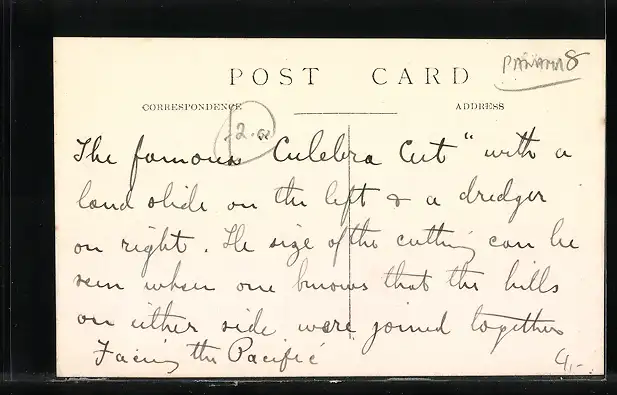 PANAMA 8
POST CARD
CORRESPONDENCE
ADDRESS
2.00
The famous Culebra Cut" with a
land slide on the left & a dredger
on right. The size of the cutting can be
seen when one knows that the hills
on either side were joined together
Facing the Pacific
4/-